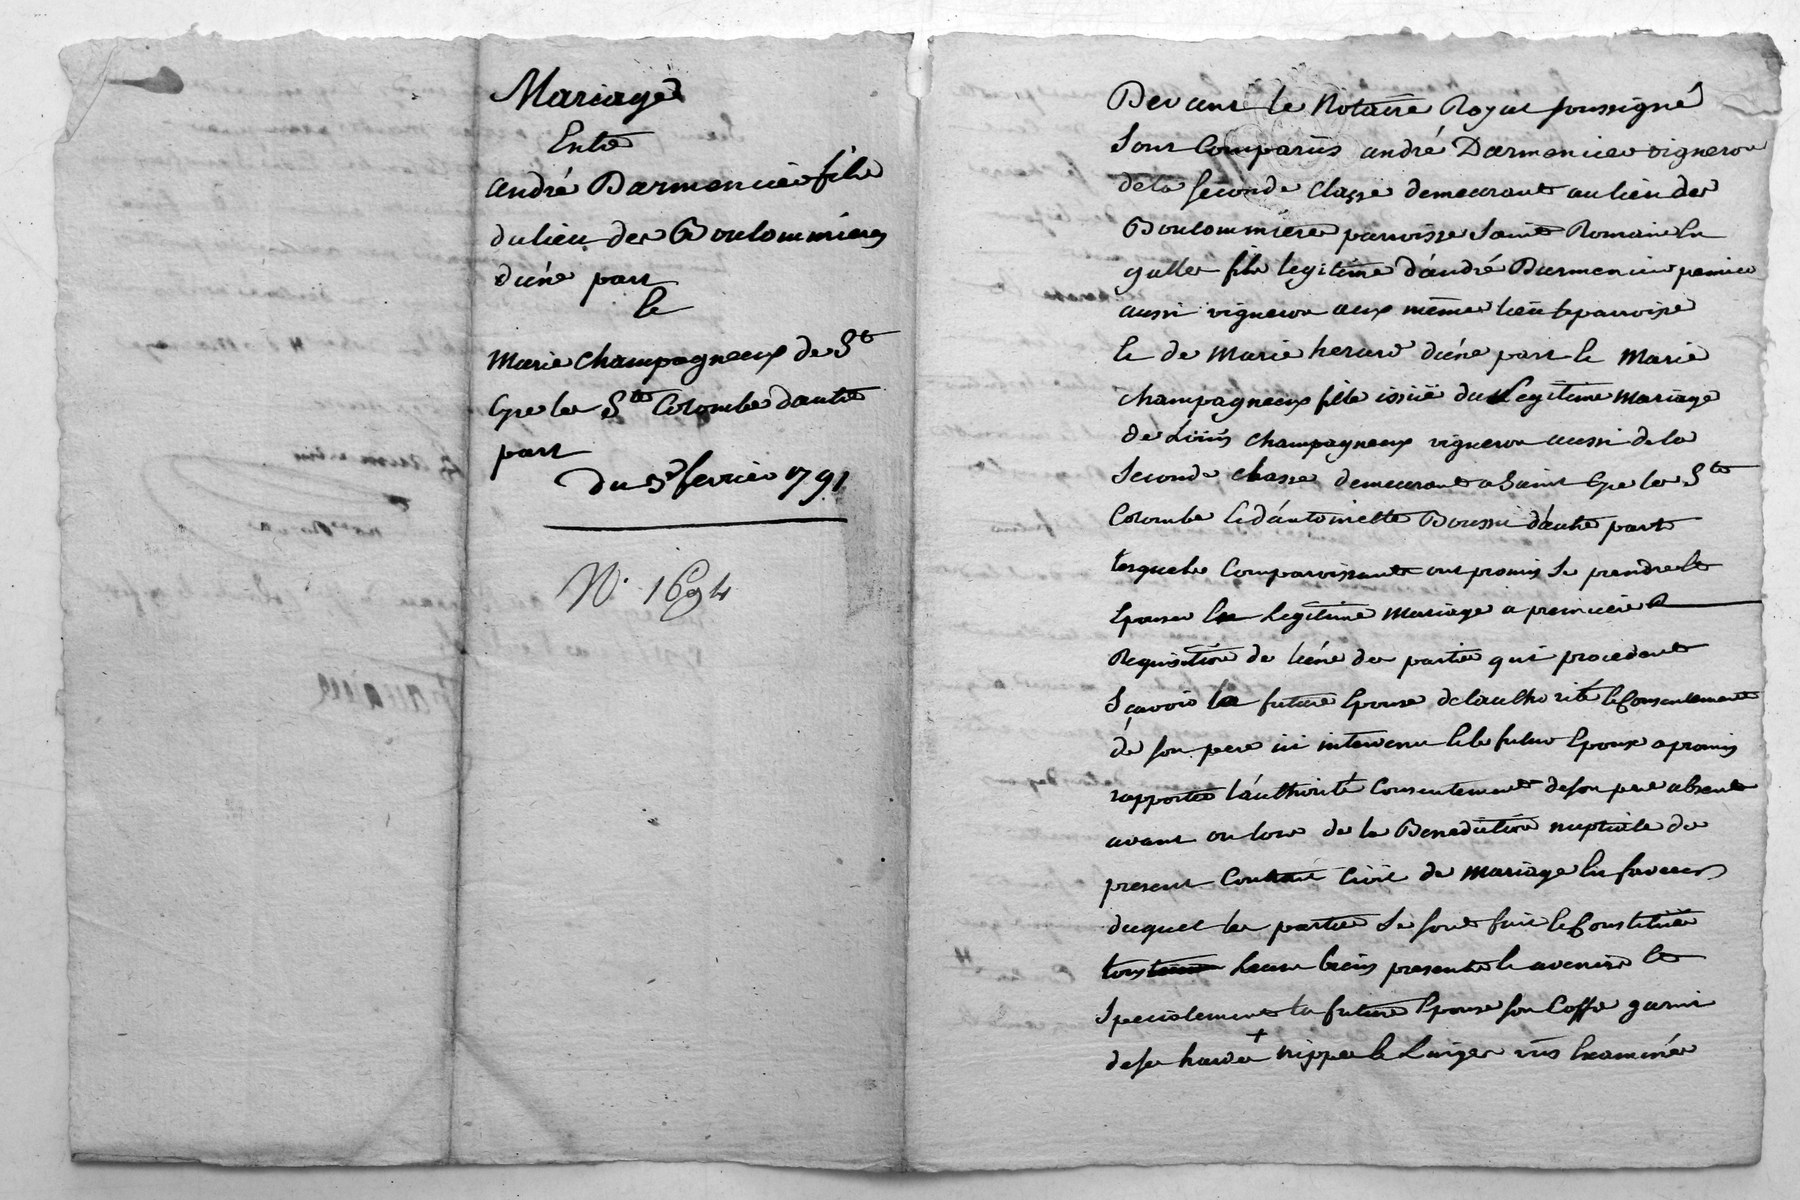 Mariage
Entre
andré Darmencier fils
du lieu des Boulommieres
d'une part
Et
Marie Champagneux de St
Cyr les Ste Colombe d'autre
part
du 3e fevrier 1791
N. 1694
Devant le Notaire Royal soussigné
Sont Comparus andré Darmencier vigneron
de la seconde classe demeurant au lieu des
Boulommieres parroisse Saint Romain En
galle fils legitime d'andré Darmencier
aussi vigneron aux même lieu et parroisse
Et de Marie herard d'une part Et Marie
Champagneux fille issüe du Legitime Mariage
de Loüis Champagneux vigneron aussi de la
Seconde classe demeurant a Saint Cyr les Ste
Colombe Et d'antoinette Boussu d'autre part
lesquels Comparoissants ont promis Se prendre Et
Epouser En Legitime Mariage a premiere
Requisition de l'une des parties qui procedent
Sçavoir la future Epouse de l'authorité Et Consentement
de son pere ici intervenu Et le futur Epoux a promis
rapporter l'authorité Consentement de son pere absent
avant ou lors de la Benediction nuptiale du
present Contrat Civil de Mariage En faveur
duquel les parties Se sont fait Et Constitué
tous leurs biens presents Et avenirs Et
Specialement la future Epouse son Coffre garni
de ses hardes + nippes Et Linges vus Examinés